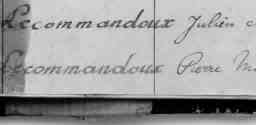 Lecommandoux Julien
Lecommandoux Pierre M